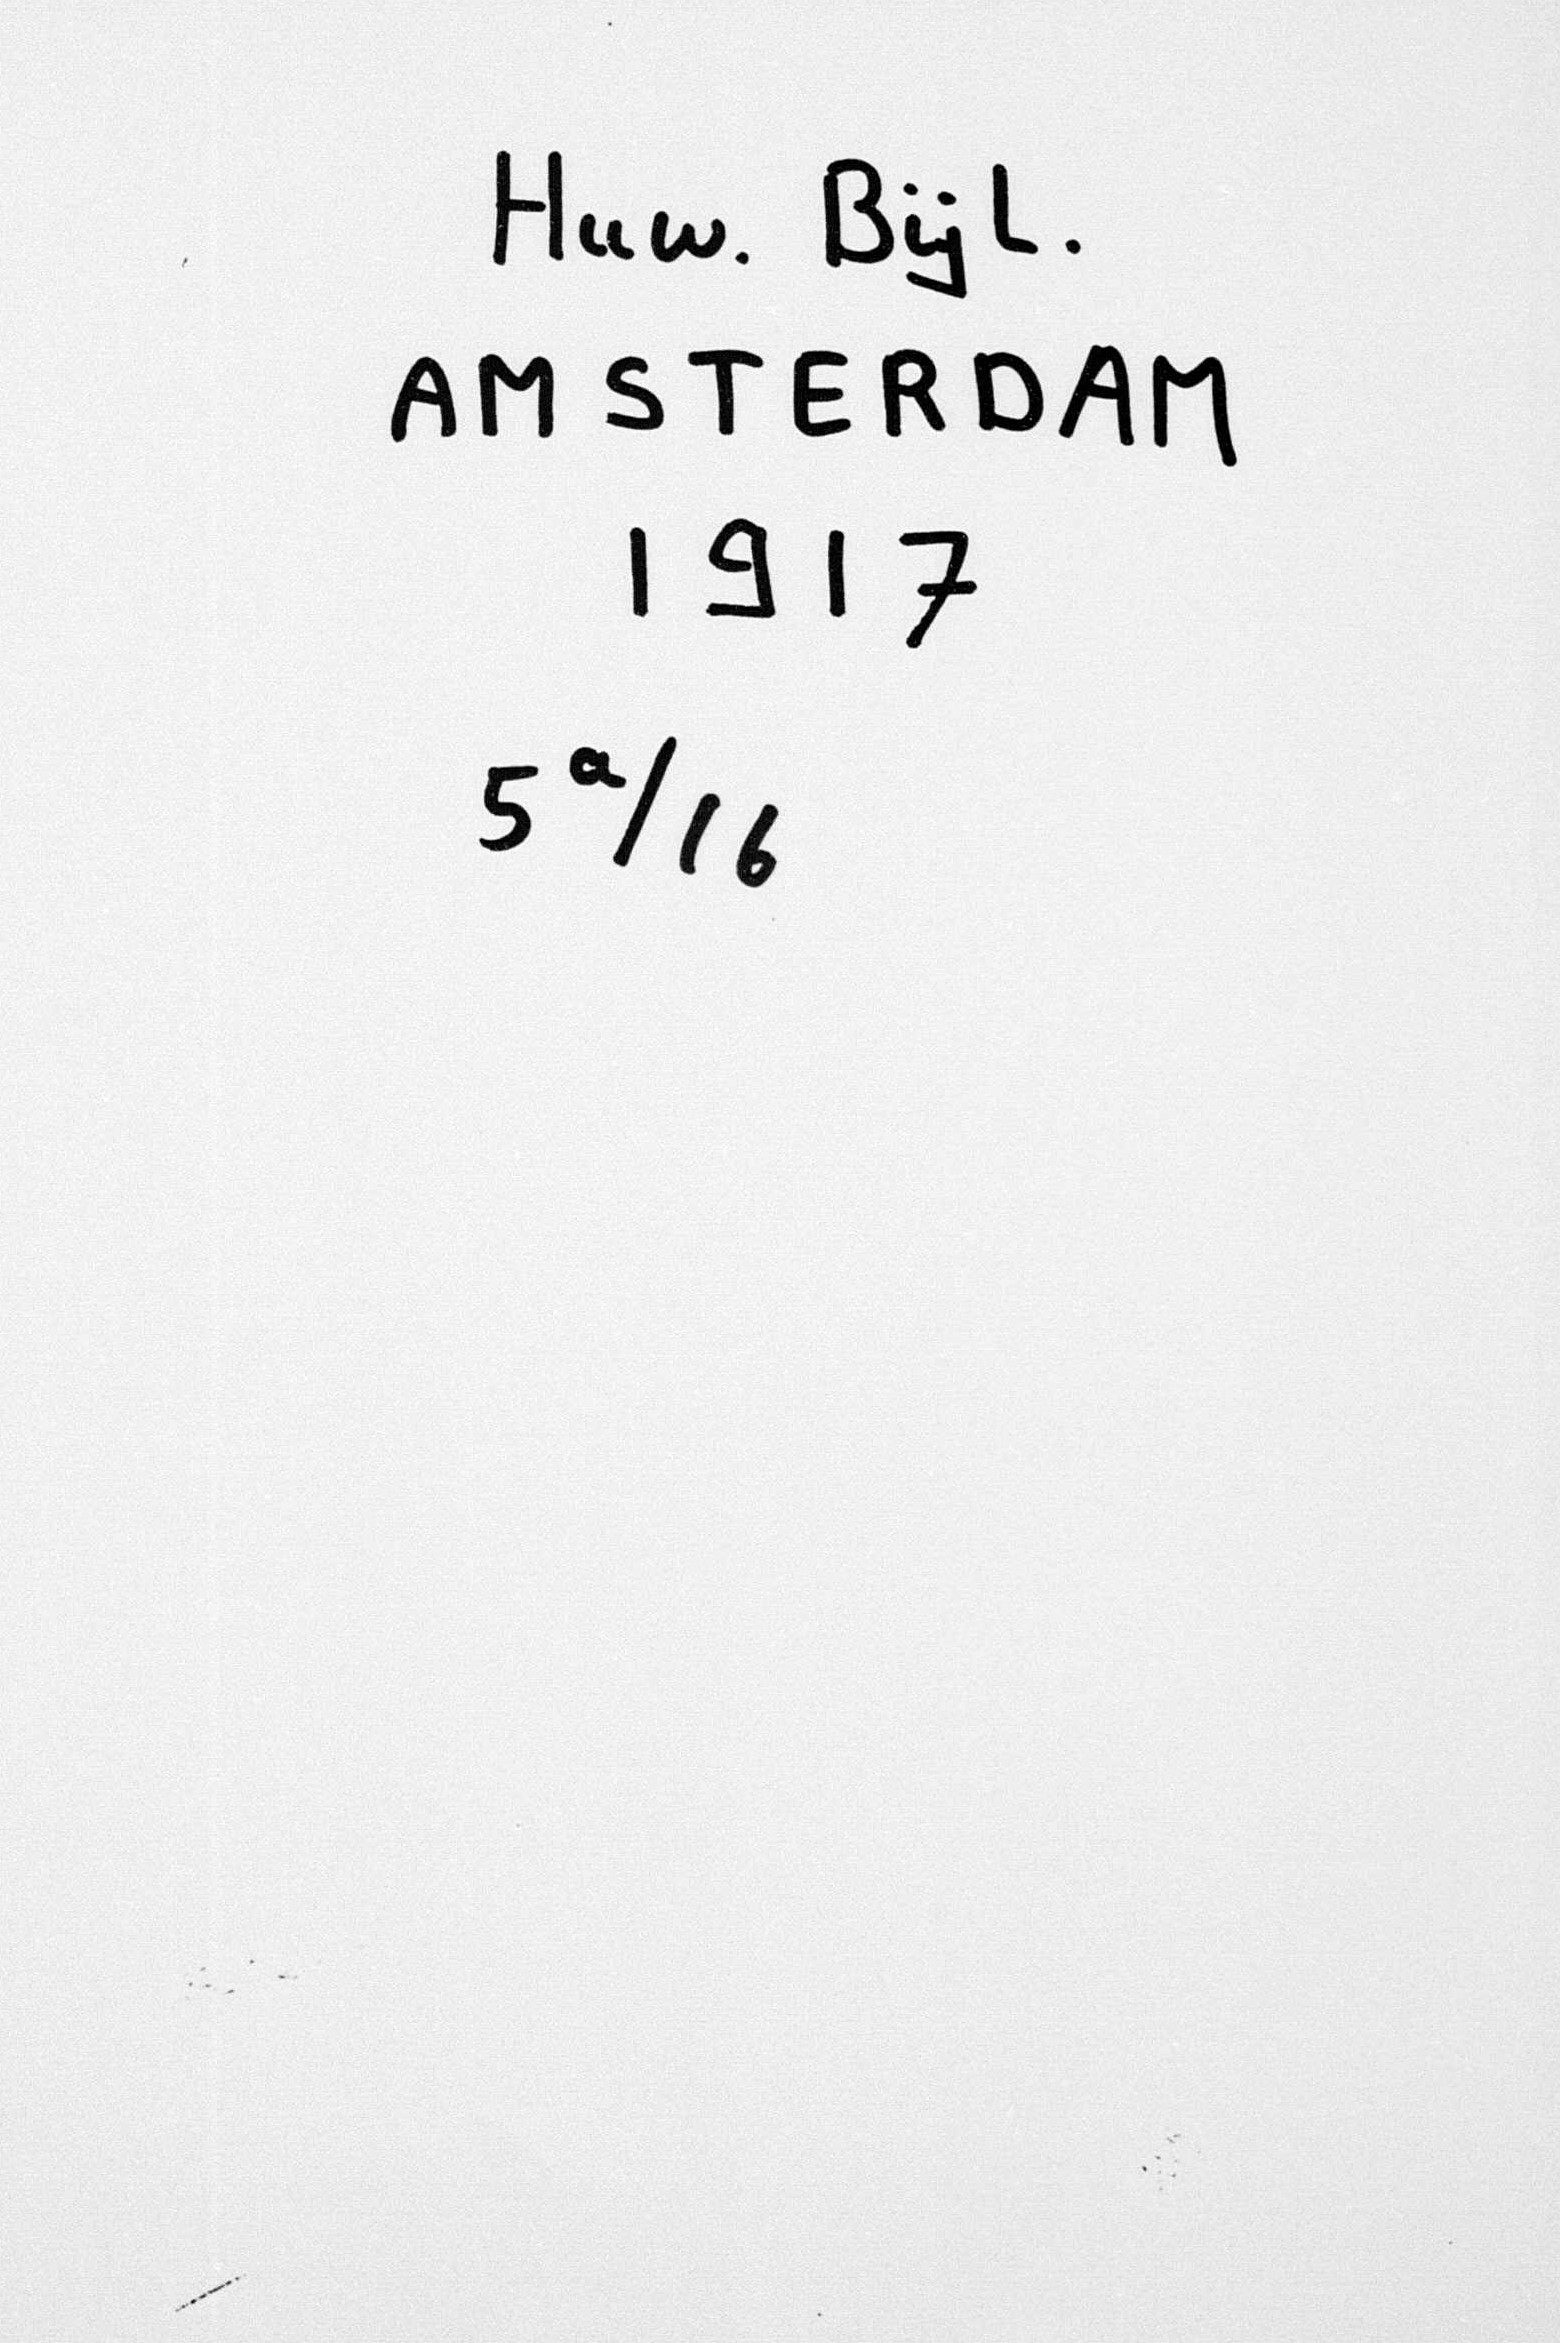 Huw. Bijl.
AMSTERDAM
1917
5ª/16